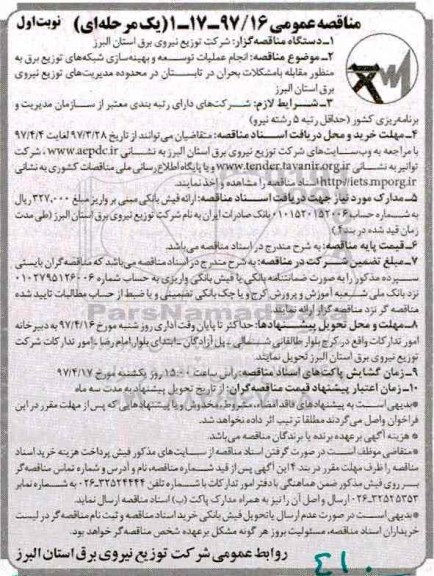 مناقصه عمومی ۹۷/۱۶-۱۷-۱ (یک مرحله‌ای) نوبت اول
۱-دستگاه مناقصه‌گزار: شرکت توزیع نیروی برق استان البرز
۲-موضوع مناقصه: انجام عملیات توسعه و بهینه‌سازی شبکه‌های توزیع برق به
منظور مقابله بامشکلات بحران در تابستان در محدوده مدیریت‌های توزیع نیروی
برق استان البرز
۳-شرایط لازم: شرکت‌های دارای رتبه بندی معتبر از سازمان مدیریت و
برنامه‌ریزی کشور (حداقل رتبه ۵ رشته نیرو)
۴-مهلت خرید و محل دریافت اسناد مناقصه: متقاضیان می‌توانند از تاریخ ۹۷/۳/۲۸ لغایت ۹۷/۴/۴
با مراجعه به وب‌سایت‌های شرکت توزیع نیروی برق استان البرز به نشانی www.aepdc.ir، شرکت
توانیر به نشانی www.tender.tavanir.org.ir و یا پایگاه اطلاع رسانی ملی مناقصات کشوری به نشانی
http//iets.mporg.ir اسناد مناقصه را مشاهده و اخذ نمایند.
۵-مدارک مورد نیاز جهت دریافت اسناد مناقصه: ارائه فیش بانکی مبنی بر واریز مبلغ ۳۲۷,۰۰۰ ریال
به شماره حساب ۰۱۰۱۵۲۰۱۵۲۰۰۶ بانک صادرات ایران به نام شرکت توزیع نیروی برق استان البرز (طی مدت
زمان قید شده در بند ۴)
۶-قیمت پایه مناقصه: به شرح مندرج در اسناد مناقصه می‌باشد.
۷-مبلغ تضمین شرکت در مناقصه: به شرح مندرج در اسناد مناقصه می‌باشد که مناقصه گران بایستی
سپرده مذکور را به صورت ضمانتنامه بانکی یا فیش بانکی واریزی به حساب شماره ۰۱۰۳۷۹۵۱۲۶۰۰۶
نزد بانک ملی شعبه آموزش و پرورش کرج و یا چک بانکی تضمینی و یا ضبط از حساب مطالبات تایید شده
مناقصه گر نزد مناقصه گزار ارائه نمایند.
۸-مهلت و محل تحویل پیشنهادها: حداکثر تا پایان وقت اداری روز شنبه مورخ ۹۷/۴/۱۶ به دبیرخانه
امور تدارکات واقع در کرج بلوار طالقانی شمالی - پل آزادگان - ابتدای بلوار امام رضا - امور تدارکات شرکت
توزیع نیروی برق استان البرز تحویل نمایند.
۹-زمان گشایش پاکت‌های اسناد مناقصه: راس ساعت ۱۵:۰۰ روز یکشنبه مورخ ۹۷/۴/۱۷
۱۰-زمان اعتبار پیشنهاد قیمت مناقصه‌گران: از تاریخ تحویل پیشنهاد به مدت سه ماه
*بدیهی است به پیشنهادهای فاقد امضاء، مشروط، مخدوش و یا پیشنهادهایی که پس از مهلت مقرر در این
فراخوان واصل می‌گردند مطلقا ترتیب اثر داده نخواهد شد.
* هزینه آگهی بر عهده برنده یا برندگان مناقصه می‌باشد.
*متقاضی موظف است در صورت گرفتن اسناد مناقصه از سایت‌های مذکور فیش پرداخت هزینه خرید اسناد
مناقصه را ظرف مهلت مقرر در بند ۴ این آگهی پس از قید شماره مناقصه، نام و آدرس و شماره تماس مناقصه‌گر
بر روی فیش مذکور ضمن هماهنگی با دفتر امور تدارکات با شماره تلفن ۳۲۵۲۴۴۴۴-۰۲۶ به شماره نمابر
۳۲۵۲۵۲۵۳-۰۲۶ ارسال و اصل آن را نیز به همراه مدارک پاکت (ب) اسناد مناقصه ارسال نماید.
*بدیهی است در صورت عدم ارسال یا تحویل فیش بانکی خرید اسناد مناقصه و ثبت نام مناقصه‌گر در لیست
خریداران اسناد مناقصه، مسئولیت بروز هر گونه مشکل بر عهده شخص مناقصه‌گر خواهد بود.
روابط عمومی شرکت توزیع نیروی برق استان البرز